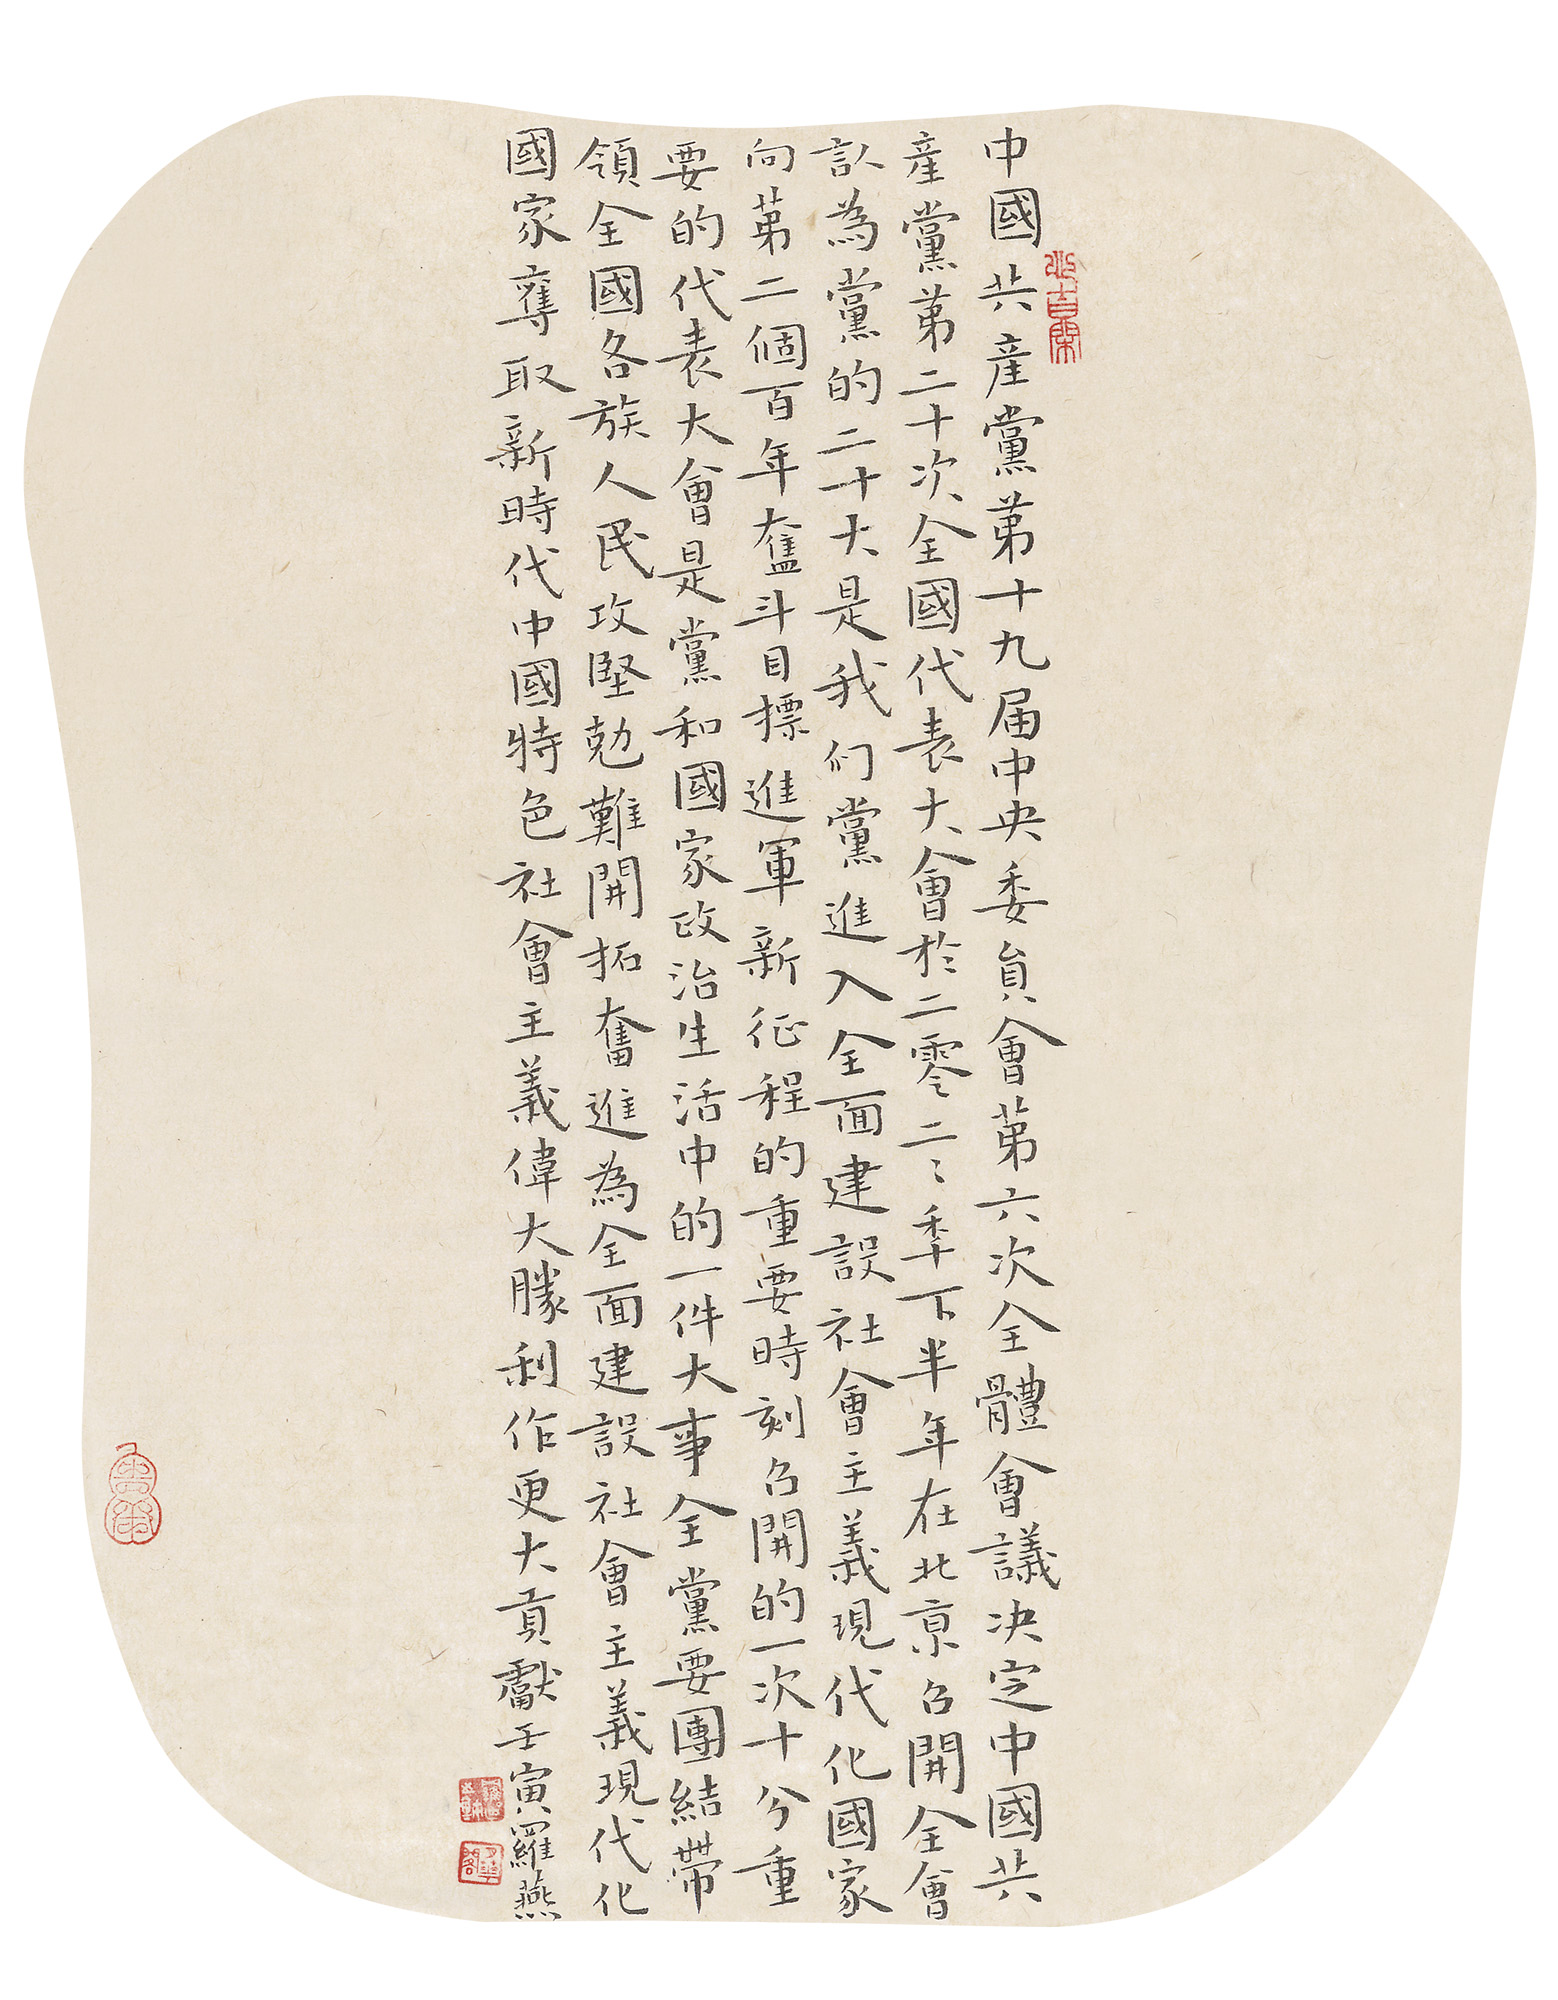 中國共産黨第十九届中央委員會第六次全體會議决定中國共
産黨第二十次全國代表大會於二零二二季下半年在北京召開全會
認為黨的二十大是我们黨進入全面建設社會主義現代化國家
向第二個百年奮斗目標進軍新征程的重要時刻召開的一次十分重
要的代表大會是黨和國家政治生活中的一件大事全黨要團結帶
領全國各族人民攻堅勉難開拓奮進為全面建設社會主義現代化
國家奪取新時代中國特色社會主義偉大勝利作更大貢獻壬寅羅燕